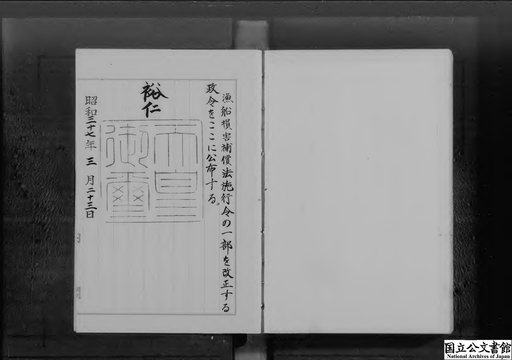 漁船損害補償法施行令の一部を改正する
政令をここに公布する。
裕仁
天皇
御璽
昭和三十七年三月二十三日
国立公文書館
National Archives of Japan